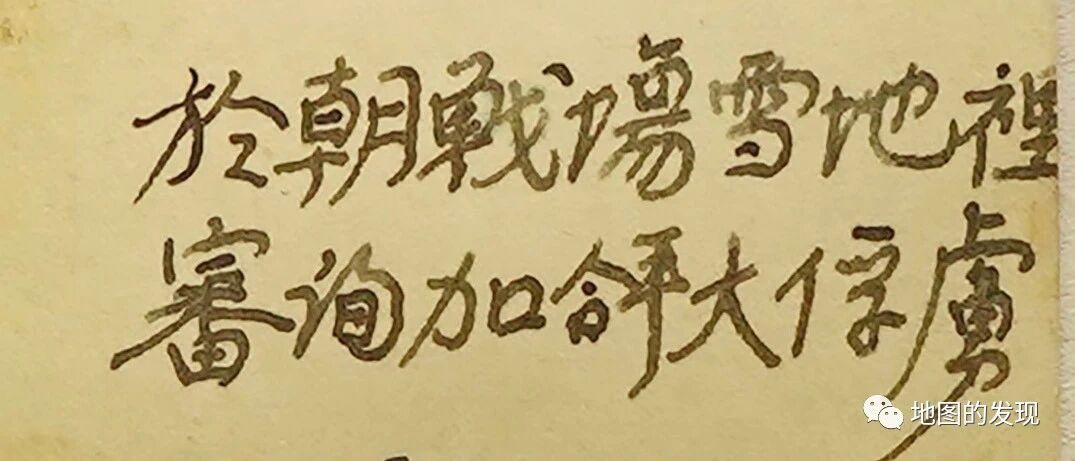 於朝戦塲雪地裡
審詢加拿大俘虜
地图的发现